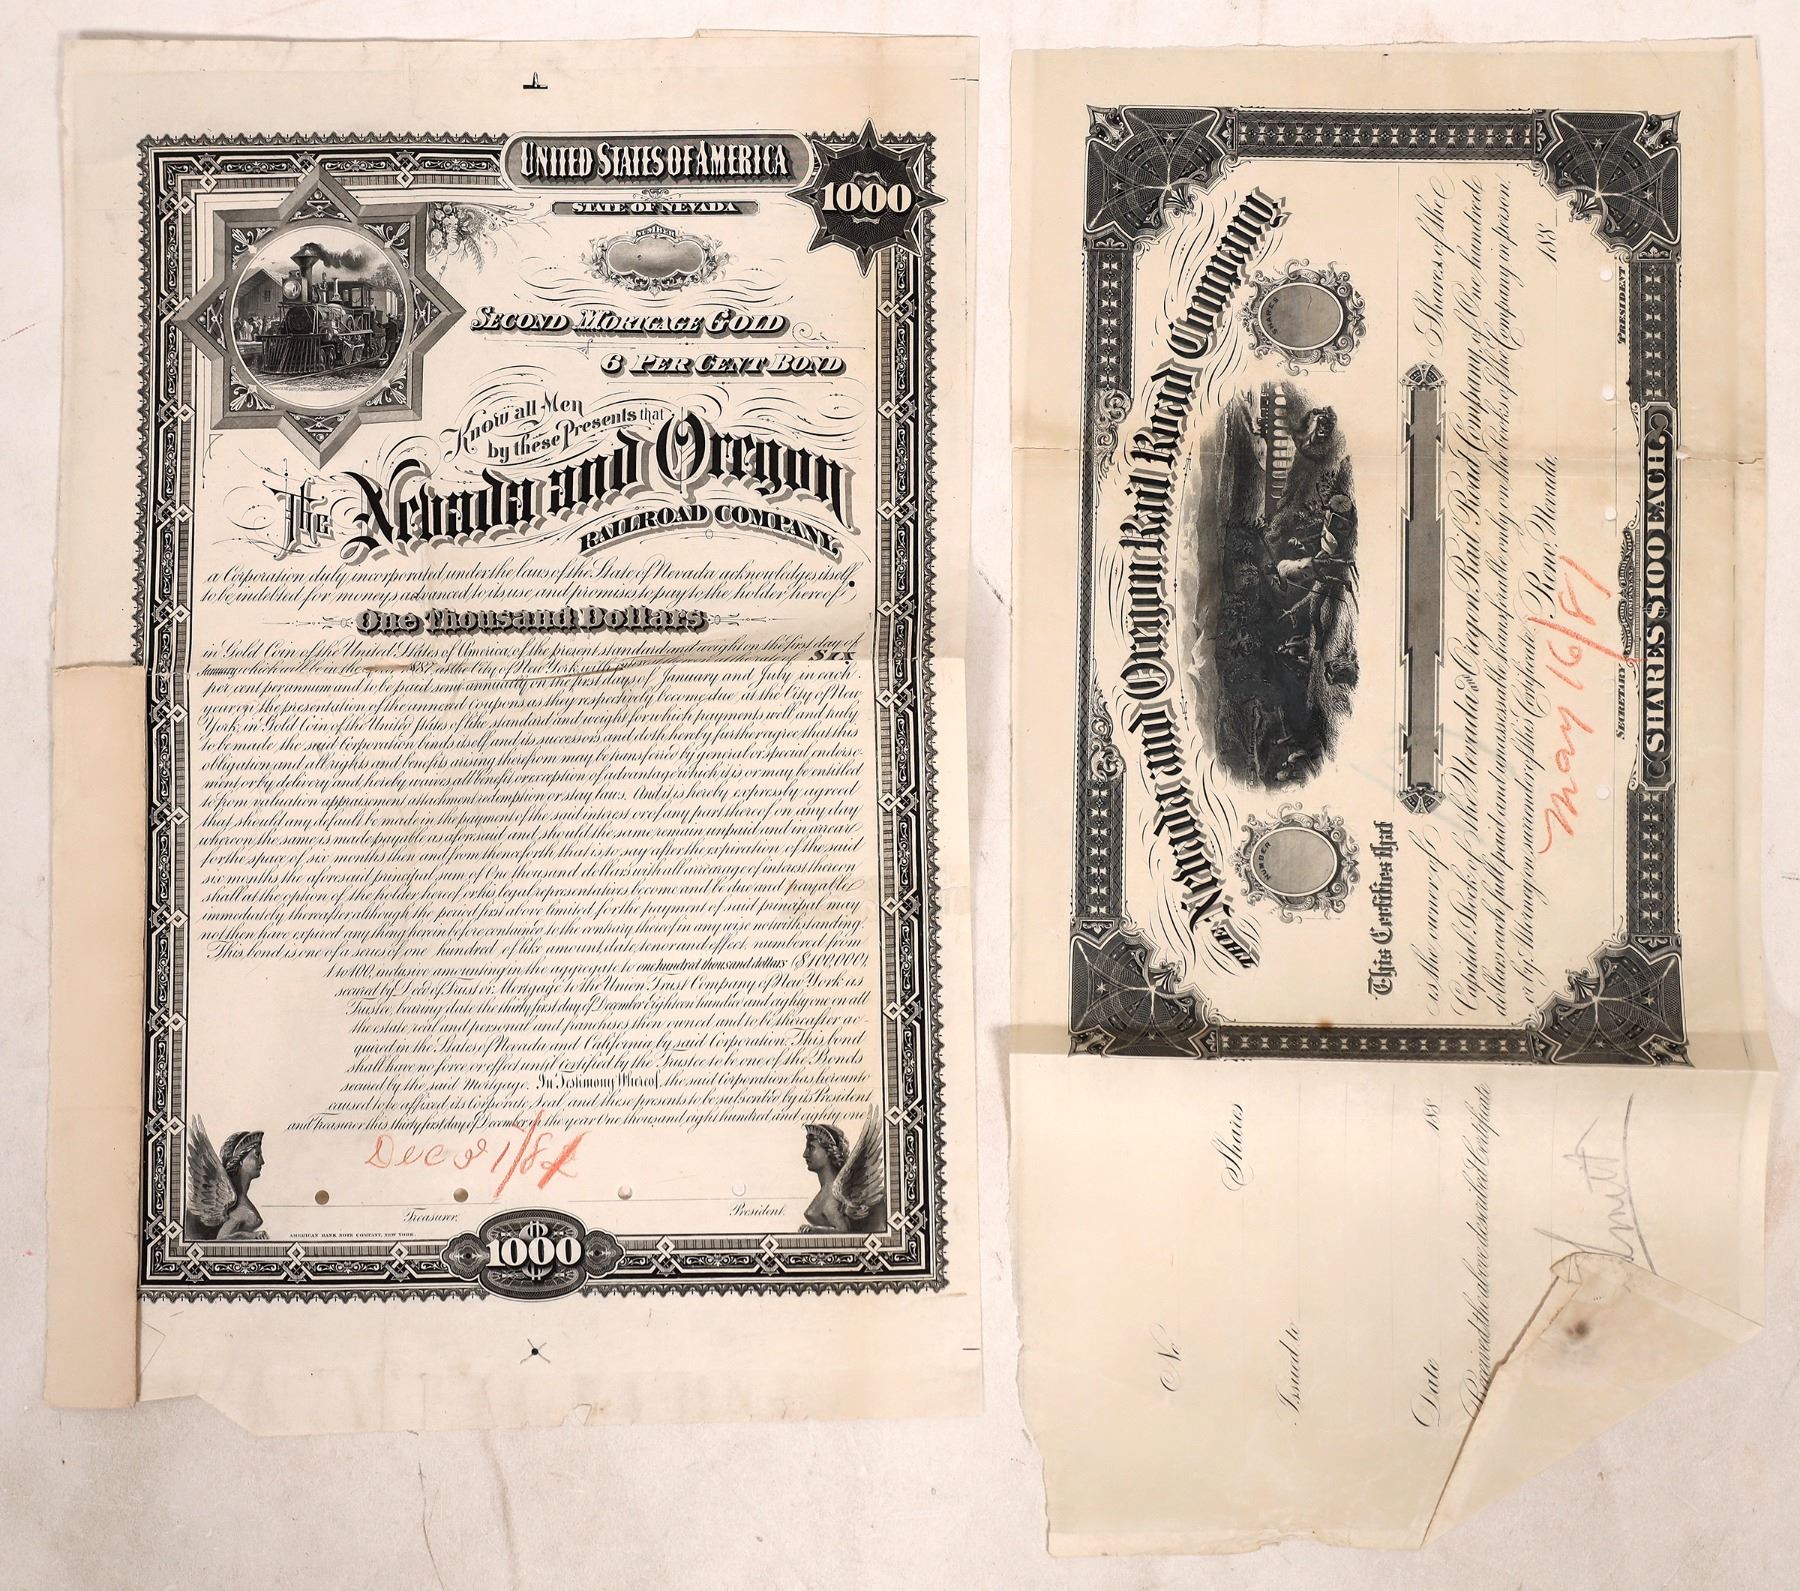 UNITED STATES OF AMERICA
1000
STATE OF NEVADA
NUMBER
SECOND MORTGAGE GOLD
6 PER CENT BOND
Know all Men
by these Presents that
The Nevada and Oregon
RAILROAD COMPANY,
a Corporation duly incorporated under the laws of the State of Nevada acknowledges itself
to be indebted for moneys advanced to its use, and promises to pay to the holder hereof
One Thousand Dollars
in Gold Coin of the United States of America, of the present standard and weight on the first day of
January which will be in the year at the City of New York, with interest thereon at the rate of SIX
per cent per annum and to be paid semi annually on the first days of January and July in each
year on the presentation of the annexed coupons as they respectively become due at the City of New
York, in Gold Coin of the United States of like standard and weight for which payments well and truly
to be made the said Corporation binds itself and its successors and doth hereby further agree that this
obligation and all rights and benefits arising therefrom may be transferred by general or special endorse-
ment or by delivery and hereby waives all benefit or exception of advantage which it is or may be entitled
to from valuation appraisement attachment redemption or stay laws. And it is hereby expressly agreed
that should any default be made in the payment of the said interest or of any part thereof on any day
whereon the same is made payable as aforesaid and should the same remain unpaid and in arrear
for the space of six months then and from thenceforth, that is to say after the expiration of the said
six months the aforesaid principal sum of One thousand dollars with all arrearage of interest thereon
shall at the option of the holder hereof or his legal representatives become and be due and payable
immediately thereafter although the period first above limited for the payment of said principal may
not then have expired any thing herein before contained to the contrary thereof in any wise notwithstanding.
This bond is one of a series of one hundred of like amount, date, tenor and effect, numbered from
1 to 100, inclusive amounting in the aggregate to one hundred thousand dollars ($100,000),
secured by Deed of Trust or Mortgage to the Union Trust Company of New York as
Trustee, bearing date the thirty first day of December Eighteen hundred and eighty one on all
the estate real and personal and franchises then owned and to be thereafter ac-
quired in the States of Nevada and California by said Corporation. This bond
shall have no force or effect until Certified by the Trustee to be one of the Bonds
secured by the said Mortgage. In Testimony Whereof, the said Corporation has hereunto
caused to be affixed its Corporate Seal and these presents to be subscribed by its President
and Treasurer this thirty first day of December in the year One thousand, eight hundred and eighty one
Dec 31/81
Treasurer.
President.
AMERICAN BANK NOTE COMPANY, NEW YORK.
1000
THE Nevada and Oregon Rail Road Company
NUMBER
SHARES
This Certifies that
is the owner of Shares of the
Capital Stock of the Nevada and Oregon Rail Road Company, of One hundred
dollars each, full paid and unassessable, transferable only on the books of the Company in person,
or by Attorney on surrender of this Certificate.
Reno, Nevada, 188
May 16/81
SECRETARY
PRESIDENT
SHARES $100 EACH
No.
Shares
Issued to
Date 188
Received the above described Certificate
Smith